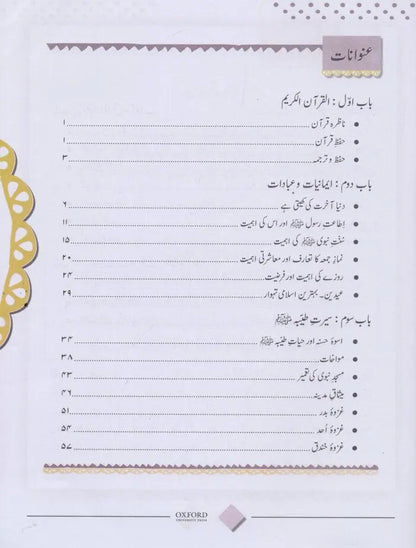 عنوانات
باب اوّل: القرآن الکریم
ناظرہ قرآن ۱
حفظ قرآن ۱
حفظ و ترجمہ ۳
باب دوم: ایمانیات و عبادات
دنیا آخرت کی کھیتی ہے ۶
اطاعتِ رسول ﷺ اور اس کی اہمیت ۱۱
سنّتِ نبوی ﷺ کی اہمیت ۱۵
نمازِ جمعہ کا تعارف اور معاشرتی اہمیت ۲۰
روزے کی اہمیت اور فرضیت ۲۴
عیدین۔ بہترین اسلامی تہوار ۲۹
باب سوم: سیرتِ طیّبہ ﷺ
اسوۂ حسنہ اور حیاتِ طیّبہ ﷺ ۳۴
مواخات ۳۸
مسجدِ نبوی کی تعمیر ۴۳
میثاقِ مدینہ ۴۶
غزوۂ بدر ۵۱
غزوۂ اُحد ۵۴
غزوۂ خندق ۵۷
OXFORD
UNIVERSITY PRESS